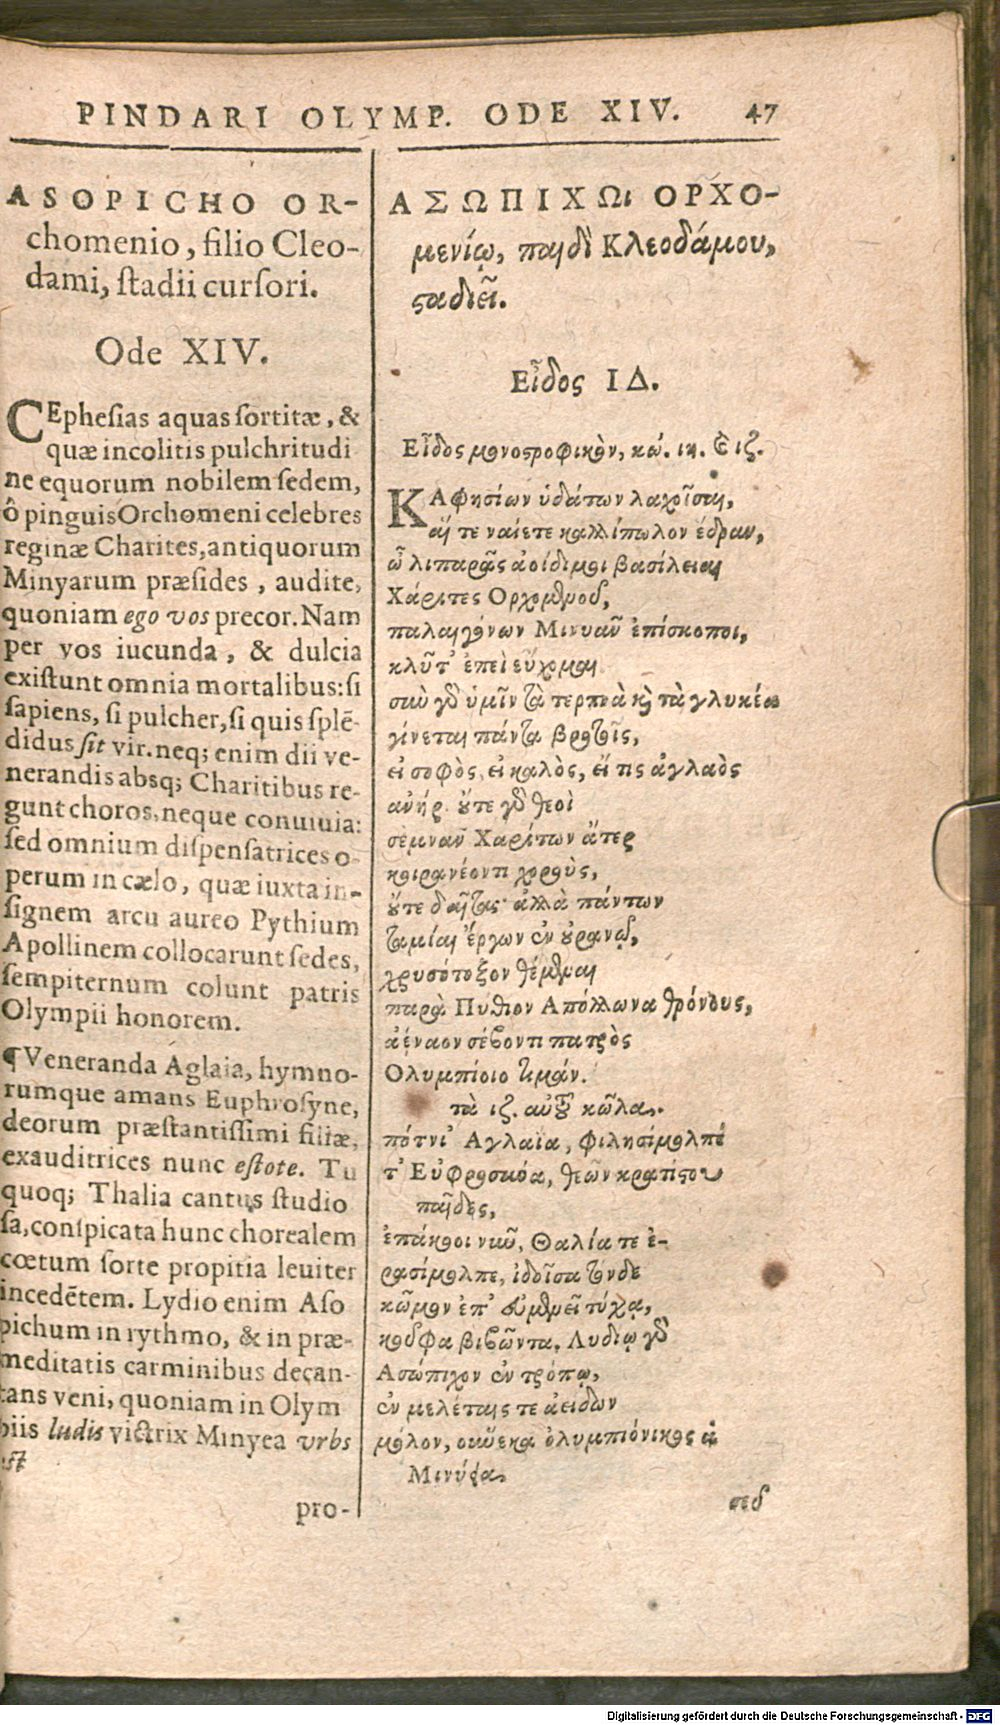 PINDARI OLYMP. ODE XIV. 47
ASOPICHO OR-
chomenio, filio Cleo-
dami, ſtadii curſori.
Ode XIV.
CEpheſias aquas ſortitæ, &
quæ incolitis pulchritudi
ne equorum nobilem ſedem,
ô pinguis Orchomeni celebres
reginæ Charites, antiquorum
Minyarum præſides, audite,
quoniam ego vos precor. Nam
per vos iucunda, & dulcia
exiſtunt omnia mortalibus: ſi
ſapiens, ſi pulcher, ſi quis ſplē-
didus ſit vir. neq; enim dii ve-
nerandis absq; Charitibus re-
gunt choros, neque conuiuia:
ſed omnium diſpenſatrices o-
perum in cælo, quæ iuxta in-
ſignem arcu aureo Pythium
Apollinem collocarunt ſedes,
ſempiternum colunt patris
Olympii honorem.
¶Veneranda Aglaia, hymno-
rumque amans Euphroſyne,
deorum præſtantiſſimi filiæ,
exauditrices nunc eſtote. Tu
quoq; Thalia cantus ſtudio
ſa, conſpicata hunc chorealem
cœtum ſorte propitia leuiter
incedētem. Lydio enim Aſo
pichum in rythmo, & in præ-
meditatis carminibus decan-
tans veni, quoniam in Olym
piis ludis victrix Minyea vrbs
eſt
pro-
ΑΣΩΠΙΧΩι ΟΡΧΟ-
μενίῳ, παιδὶ Κλεοδάμου,
ϛαδιεῖ.
Εἶδος ΙΔ.
Εἶδος μονοϛροφικὸν, κώ. ιη. καὶ ιζ.
ΚΑφησίων ὑδάτων λαχοῖσαι,
αἵ τε ναίετε καλλίπωλον ἕδραν,
ὦ λιπαρᾶς ἀοίδιμοι βασίλειαι
Χάριτες Ορχομενοῦ,
παλαιγόνων Μινυᾶν ἐπίσκοποι,
κλῦτ' ἐπεὶ εὔχομαι
σιὼ γὸ ὑμῖν τὰ τερπνὰ κὶ τὰ γλυκέα
γίνεται πάντα βροτοῖς,
εἰ σοφὸς, εἰ καλὸς, εἴ τις ἀγλαὸς
ανήρ. οὔτε γὸ θεοὶ
σεμνᾶν Χαρίτων ἄτερ
κοιρανέοντι χοροὺς,
οὔτε δαῖτας· ἀλλὰ πάντων
ταμίαι ἔργων ἐν οὐρανῷ,
χρυσότοξον θέμεναι
παρὰ Πύθιον Απόλλωνα θρόνους,
ἀέναον σέβοντι πατρὸς
Ολυμπίοιο τιμάν.
τὰ ιζ. αὐτοῦ κῶλα.
πότνι' Αγλαΐα, φιλησίμολπέ
τ' Εὐφροσύνα, θεῶν κρατίϛου
παῖδες,
ἐπάκοοι νιῦ, Θαλία τε ἐ-
ρασίμολπε, ἰδοῖσα τόνδε
κῶμον ἐπ' εὐμενεῖ τύχᾳ,
κοῦφα βιβῶντα. Λυδίῳ γὸ
Ασώπιχον ἐν τρόπῳ,
ἐν μελέταις τε ἀείδων
μόλον, οὕνεκα ὀλυμπιόνικος ἁ
Μινύεια.
σεῦ
Digitalisierung gefördert durch die Deutsche Forschungsgemeinschaft - DFG